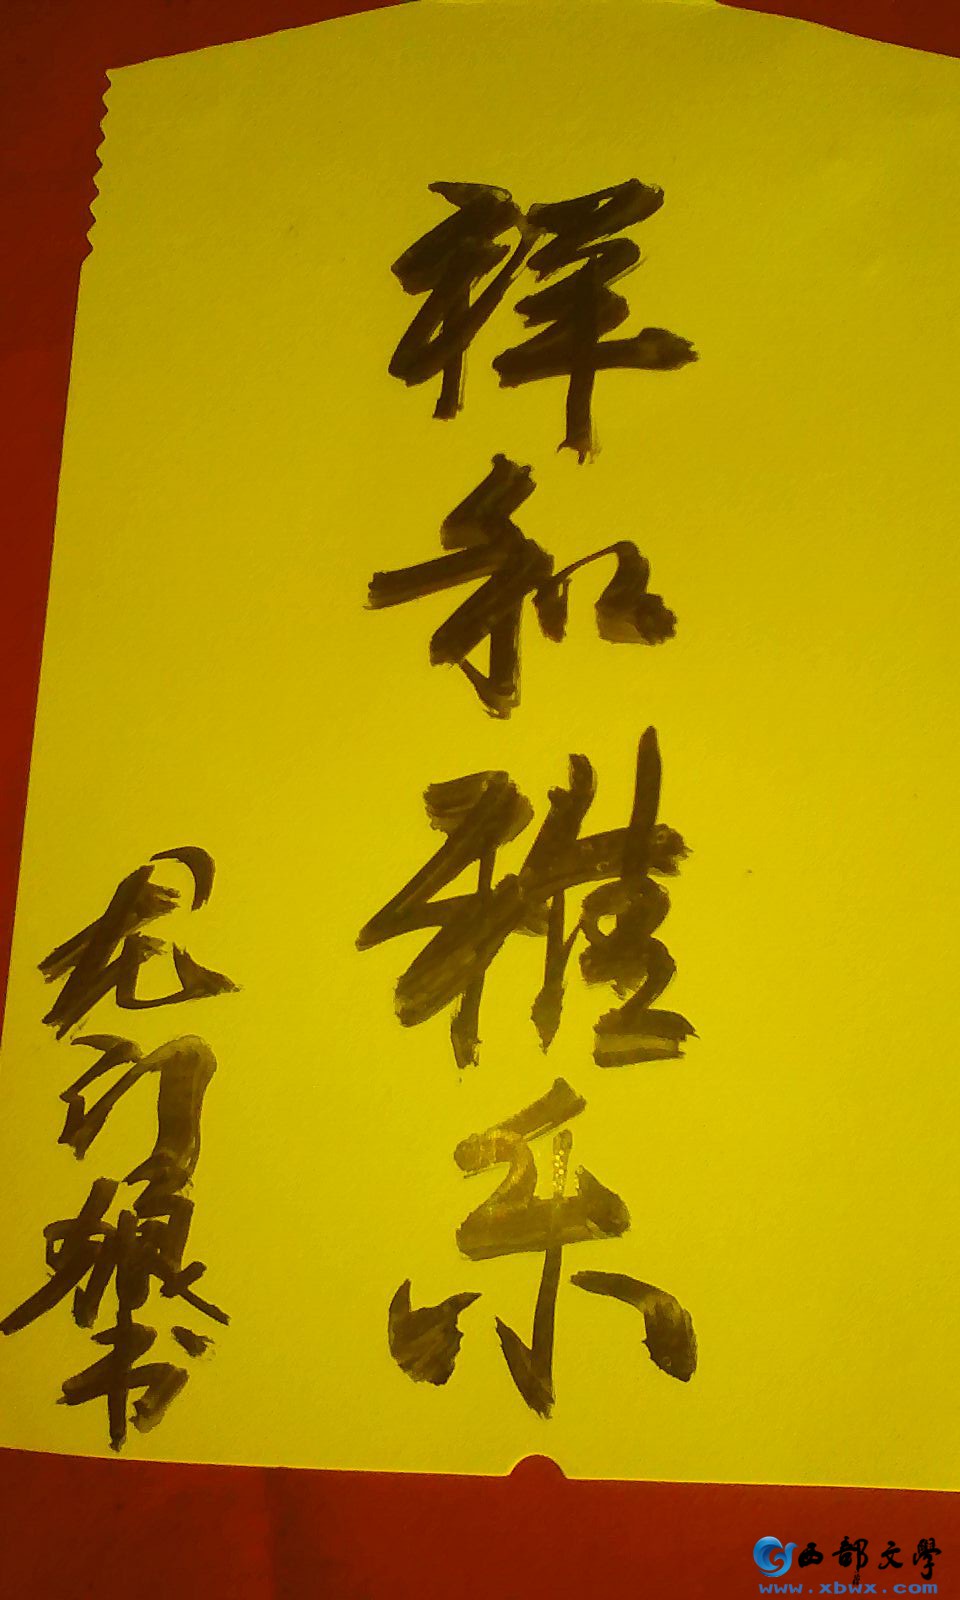 祥和雅乐
龙门娘书
西部文學
www.xbwx.com